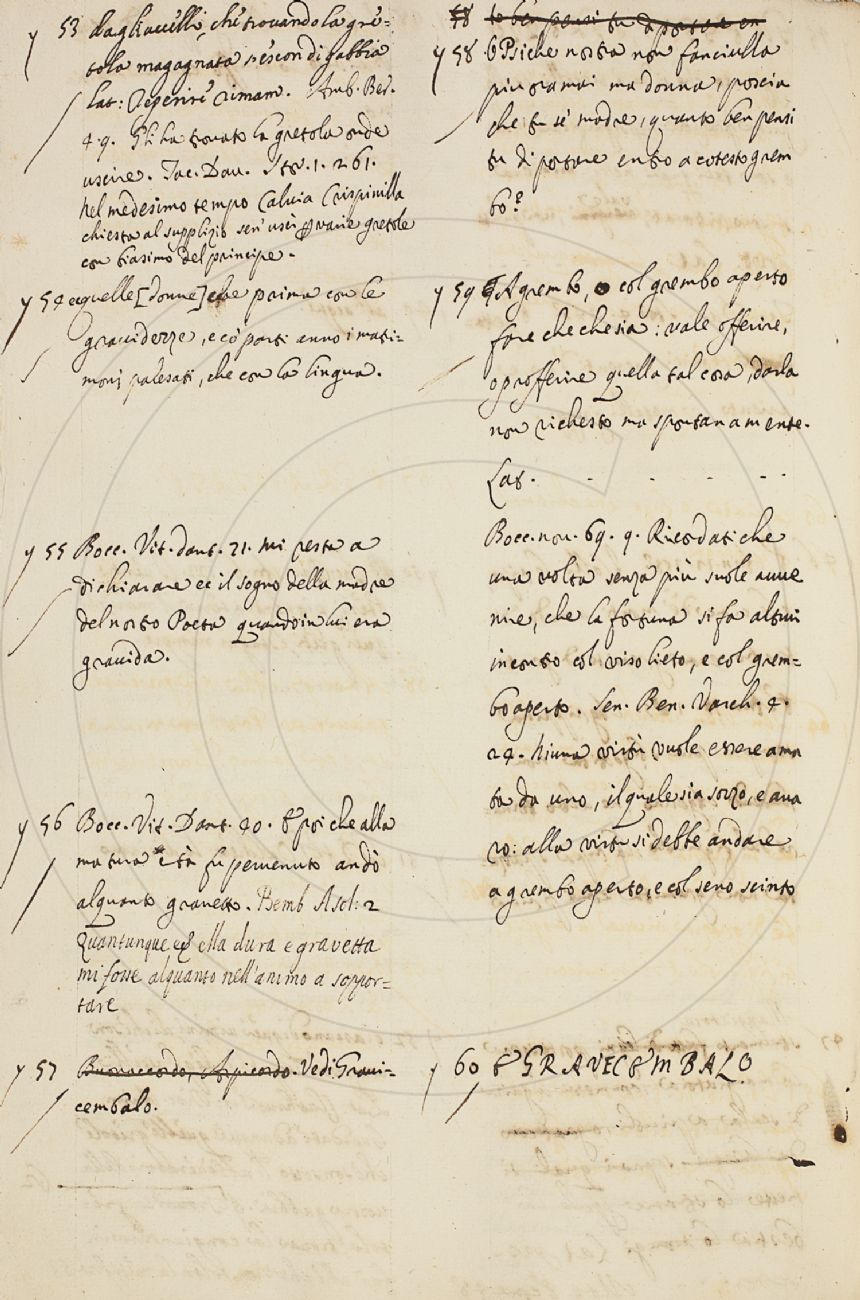 y 53 dagli uccelli, che trovando la gre-
tola magagnata n'escon di gabbia
Lat: Reperire rimam. Amb. Bed.
4. 9. Gli ha trovato la gretola onde
uscire. Tac. Dav. Stor. 1. 261.
Nel medesimo tempo Calvia Crispinilla
chiesta al supplizio sen'uscì varie gretole
con biasimo del principe.
y 54 e quelle [donne] che prima con le
gravidezze, e co' parti anno i matri=
monj palesati, che con la lingua.
y 55 Bocc. Vit. Dant. 21. Mi resta a
dichiarare ec il sogno della madre
del nostro Poeta quando in lui era
gravida.
y 56 Bocc. Vit. Dant. 40. E poiche alla
matura età fu pervenuto andò
alquanto gravetto. Bemb Asol: 2
Quantunque ella dura e gravetta
mi fosse alquanto nell'animo a soppor=
tare
y 57 Buonaccordo, Arpicordo. Vedi Gravi=
cembalo.
58 to ben pensi tu a portare en
y 58 O Psiche nostra non fanciulla
più oramai ma donna, poscia
che tu se' madre, quanto ben pensi
tu di portare entro a cotesto grem
bo?
y 59 A grembo, o col grembo aperto
fare che che sia: vale offerire,
o profferire quella tal cosa, darla
non richesto ma spontanamente.
Lat. - - - - -
Bocc. nov. 69. 9. Ricordati che
una volta senza più suole avve
nire, che la fortuna si fa altrui
incontro col viso lieto, e col grem=
bo aperto. Sen. Ben. Varch. 4.
24. Niuna virtù vuole essere ama
ta da uno, il quale sia sozzo, e ava
ro: alla virtù si debbe andare
a grembo aperto, e col seno scinto
y 60 & GRAVECEMBALO